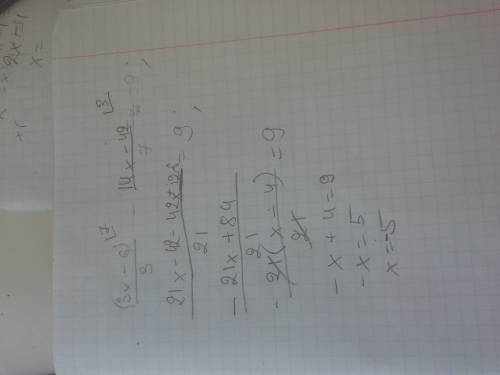 (3x-6)⌊7 / 3 - 14x-42⌊3 / 7 = 9;
21x-42-42x+126 / 21 = 9;
-21x+84 / 21
-21(x-4) / 21 = 9
-x+4=9
-x=5
x=-5
2x-11
x=